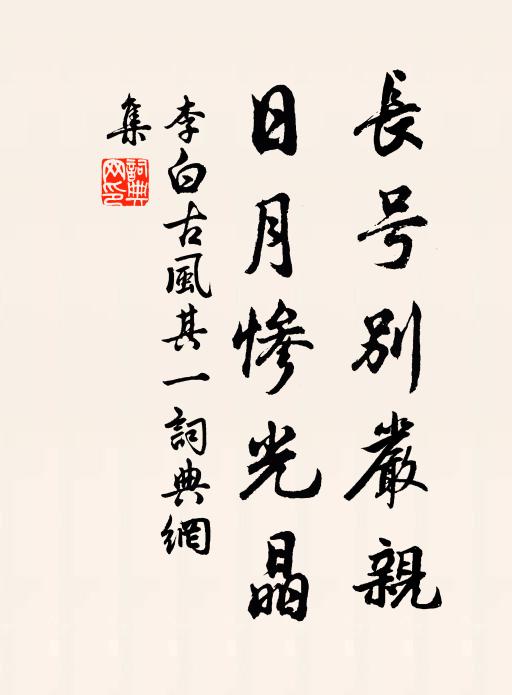 長号別嚴親
日月慘光晶
李白古風其一詞典網
集
詞典
网印